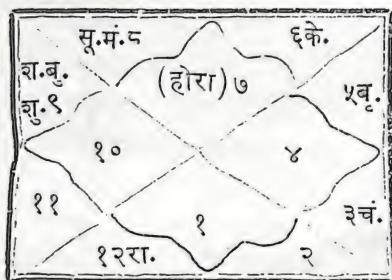 सू.मं.८
६के.
श.बु.
शु.९
(होरा)७
५बृ.
१०
४
११
३चं.
१
१२रा.
२